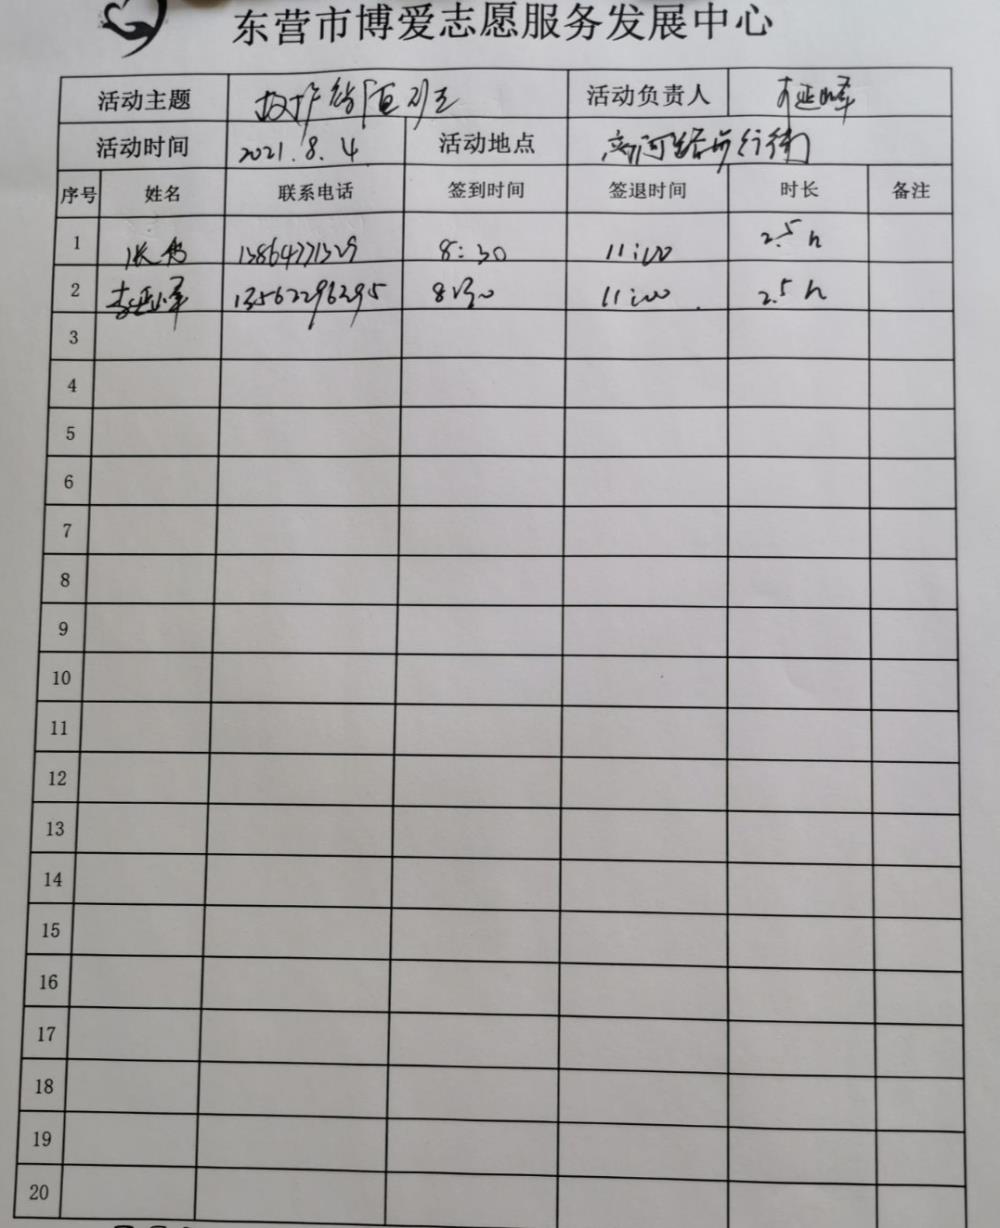 东营市博爱志愿服务发展中心
活动主题 活动负责人 李延峰
活动时间 2021.8.4 活动地点
序号 姓名 联系电话 签到时间 签退时间 时长 备注
1 8:30 11:00 2.5h
2 李延峰 13562296295 8:30 11:00 2.5h
3
4
5
6
7
8
9
10
11
12
13
14
15
16
17
18
19
20